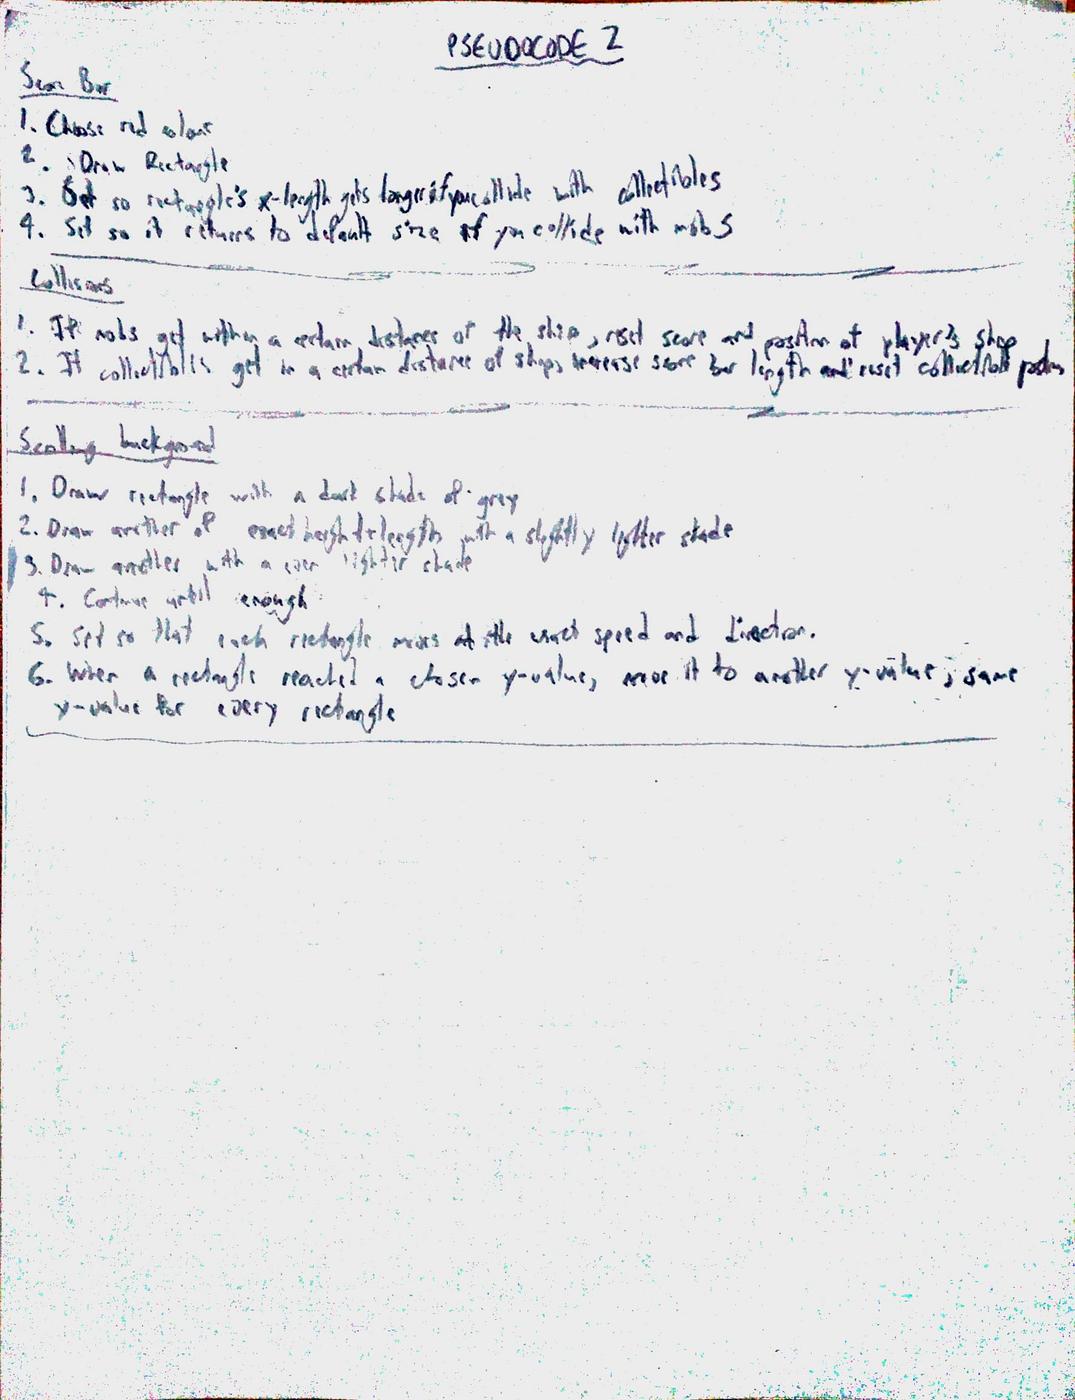 PSEUDOCODE 2
Score Bar
1. Choose red colour
2. Draw Rectangle
3. Set so rectangle's x-length gets longer if you collide with collectibles
4. Set so it returns to default size if you collide with mobs
Collisions
1. If mobs get within a certain distance of the ship, reset score and position of player's ship
2. If collectibles get in a certain distance of ship, increase score bar length and reset collectible position
Scrolling background
1. Draw rectangle with a dark shade of grey
2. Draw another of exact height+length with a slightly lighter shade
3. Draw another with a even lighter shade
4. Continue until enough
5. Set so that each rectangle moves at the exact speed and direction.
6. When a rectangle reached a chosen y-value, move it to another y-value; same
y-value for every rectangle